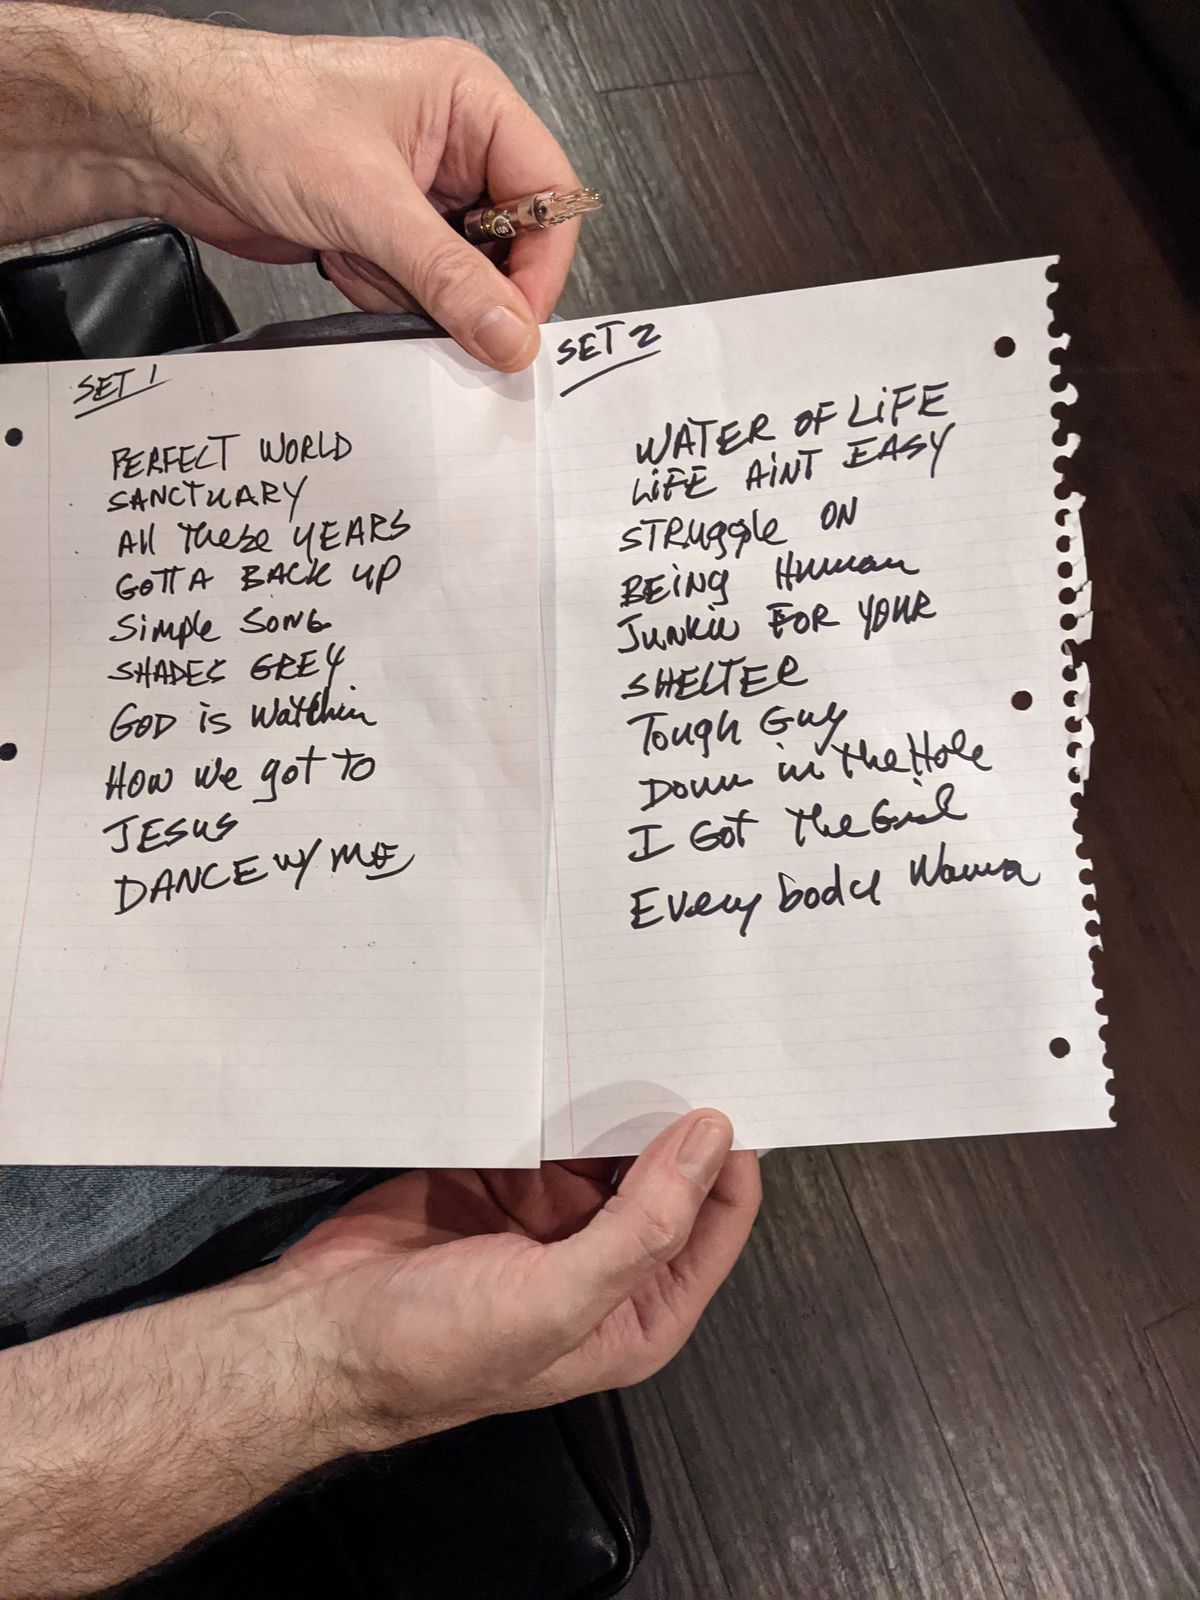 SET 1
PERFECT WORLD
SANCTUARY
All These YEARS
GOTTA BACK UP
Simple SONG
SHADES GREY
GOD is Watchin
How we got to
JESUS
DANCE W/ ME
SET 2
WATER OF LiFE
LiFE AiNT EASY
STRuggle ON
BEiNg Human
JUNKie FOR YOUR
SHELTER
Tough Guy
Down in the Hole
I Got The Girl
Everybody Wanna